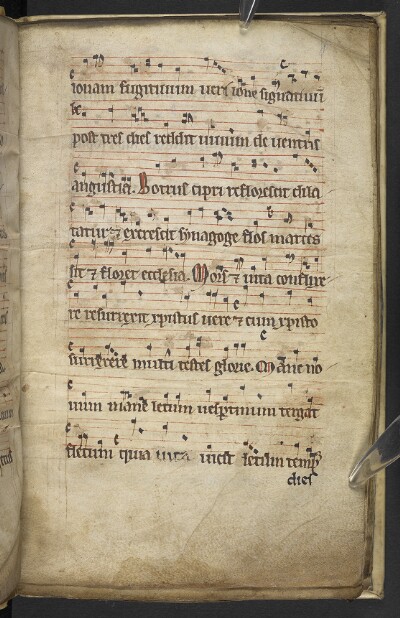 ionam fugitiuum ueri ione signatiuū
post tres dies reddit uiuum de uentris
angustia. Botrus cipri reflorescit dila
tatur ⁊ excrescit synagoge flos marces
sit ⁊ floret ecclesia. Mors ⁊ uita conflixe
re resurrexit xpistus uere ⁊ cum xpisto
surrexere multi testes glorie. Mane no
uum mane letum uespertinum tergat
fletum quia uita uicit letum temp᷒
dies